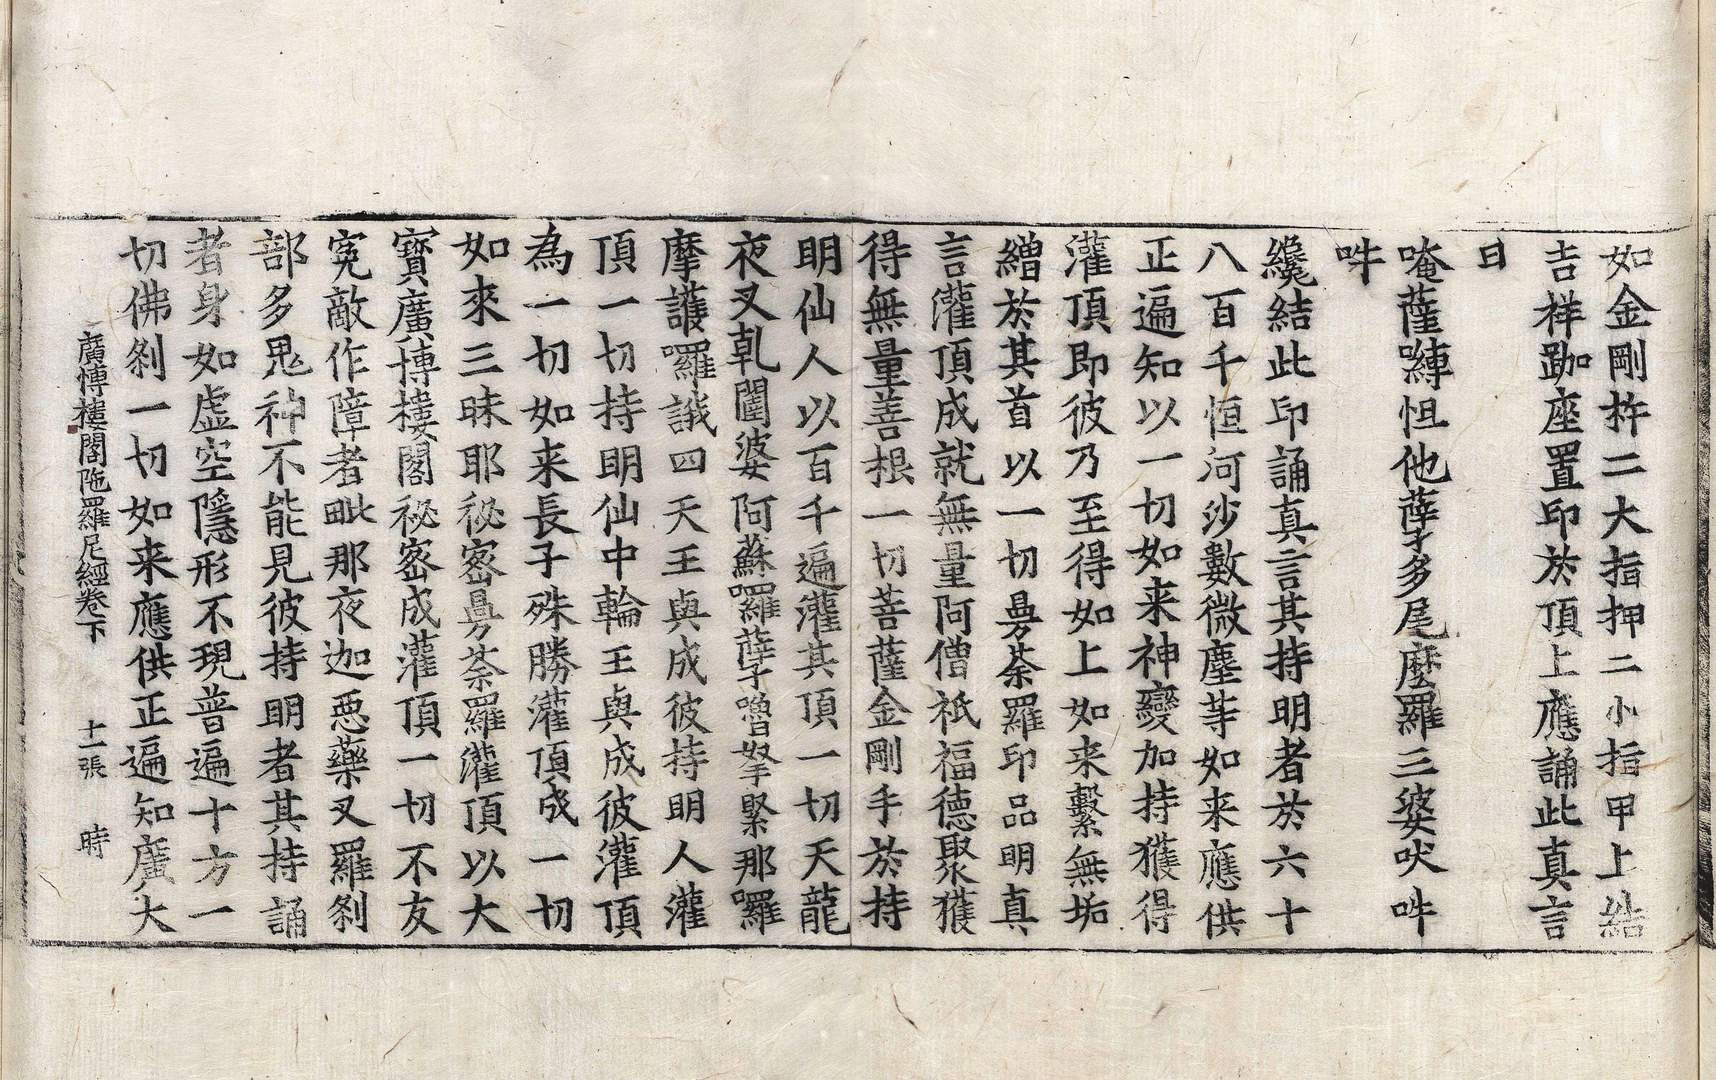 如金剛杵二大指押二小指甲上結
吉祥跏座置印於頂上應誦此真言
曰
唵薩嚩怛他孽多尾麼羅三婆吠吽
吽
纔結此印誦真言其持明者於六十
八百千恒河沙數微塵等如来應供
正遍知以一切如来神變加持獲得
灌頂即彼乃至得如上如来繫無垢
繒於其首以一切曼荼羅印品明真
言灌頂成就無量阿僧祇福德聚獲
得無量善根一切菩薩金剛手於持
明仙人以百千遍灌其頂一切天龍
夜叉乹闥婆阿蘇囉孽嚕拏緊那囉
摩護囉誐四天王與成彼持明人灌
頂一切持明仙中輪王與成彼灌頂
為一切如来長子殊勝灌頂成一切
如來三昧耶祕密曼荼羅灌頂以大
寶廣博樓閣祕密成灌頂一切不友
寃敵作障者毗那夜迦惡藥叉羅剎
部多鬼神不能見彼持明者其持誦
者身如虛空隱形不現普遍十方一
切佛剎一切如来應供正遍知廣大
廣博樓閣陁羅尼經卷下　十一張　時